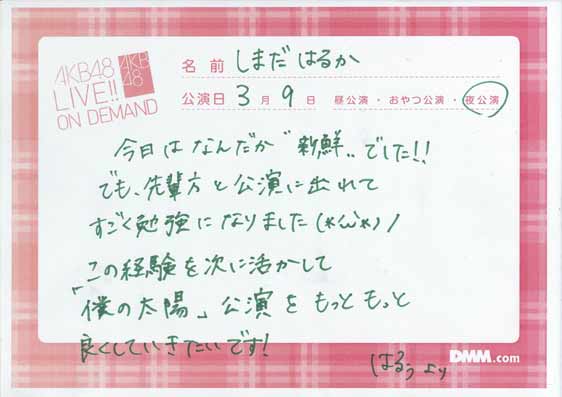 AKB48
LIVE!!
ON DEMAND
AKB
48
名前 しまだはるか
公演日 3月9日 昼公演・おやつ公演・夜公演
今日はなんだか"新鮮"でした!!
でも、先輩方と公演に出れて
すごく勉強になりました(*'ω'*)ノ
この経験を次に活かして
「僕の太陽」公演をもっともっと
良くしていきたいです!
はるぅより
DMM.com